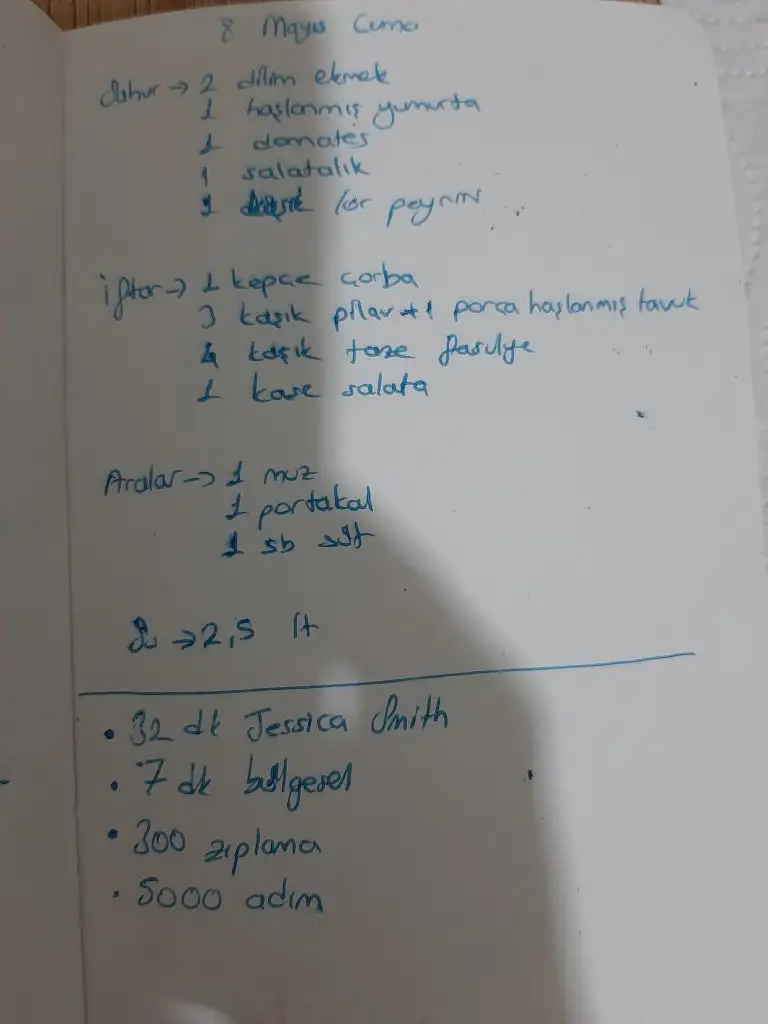 8 Mayıs Cuma
Sahur → 2 dilim ekmek
1 haşlanmış yumurta
1 domates
1 salatalık
1 kaşık lor peyniri
iftar → 1 kepçe çorba
3 kaşık pilav + 1 parça haşlanmış tavuk
4 kaşık taze fasulye
1 kase salata
Aralar → 1 muz
1 portakal
1 sb süt
Su → 2,5 lt
• 32 dk Jessica Smith
• 7 dk bölgesel
• 300 zıplama
• 5000 adım